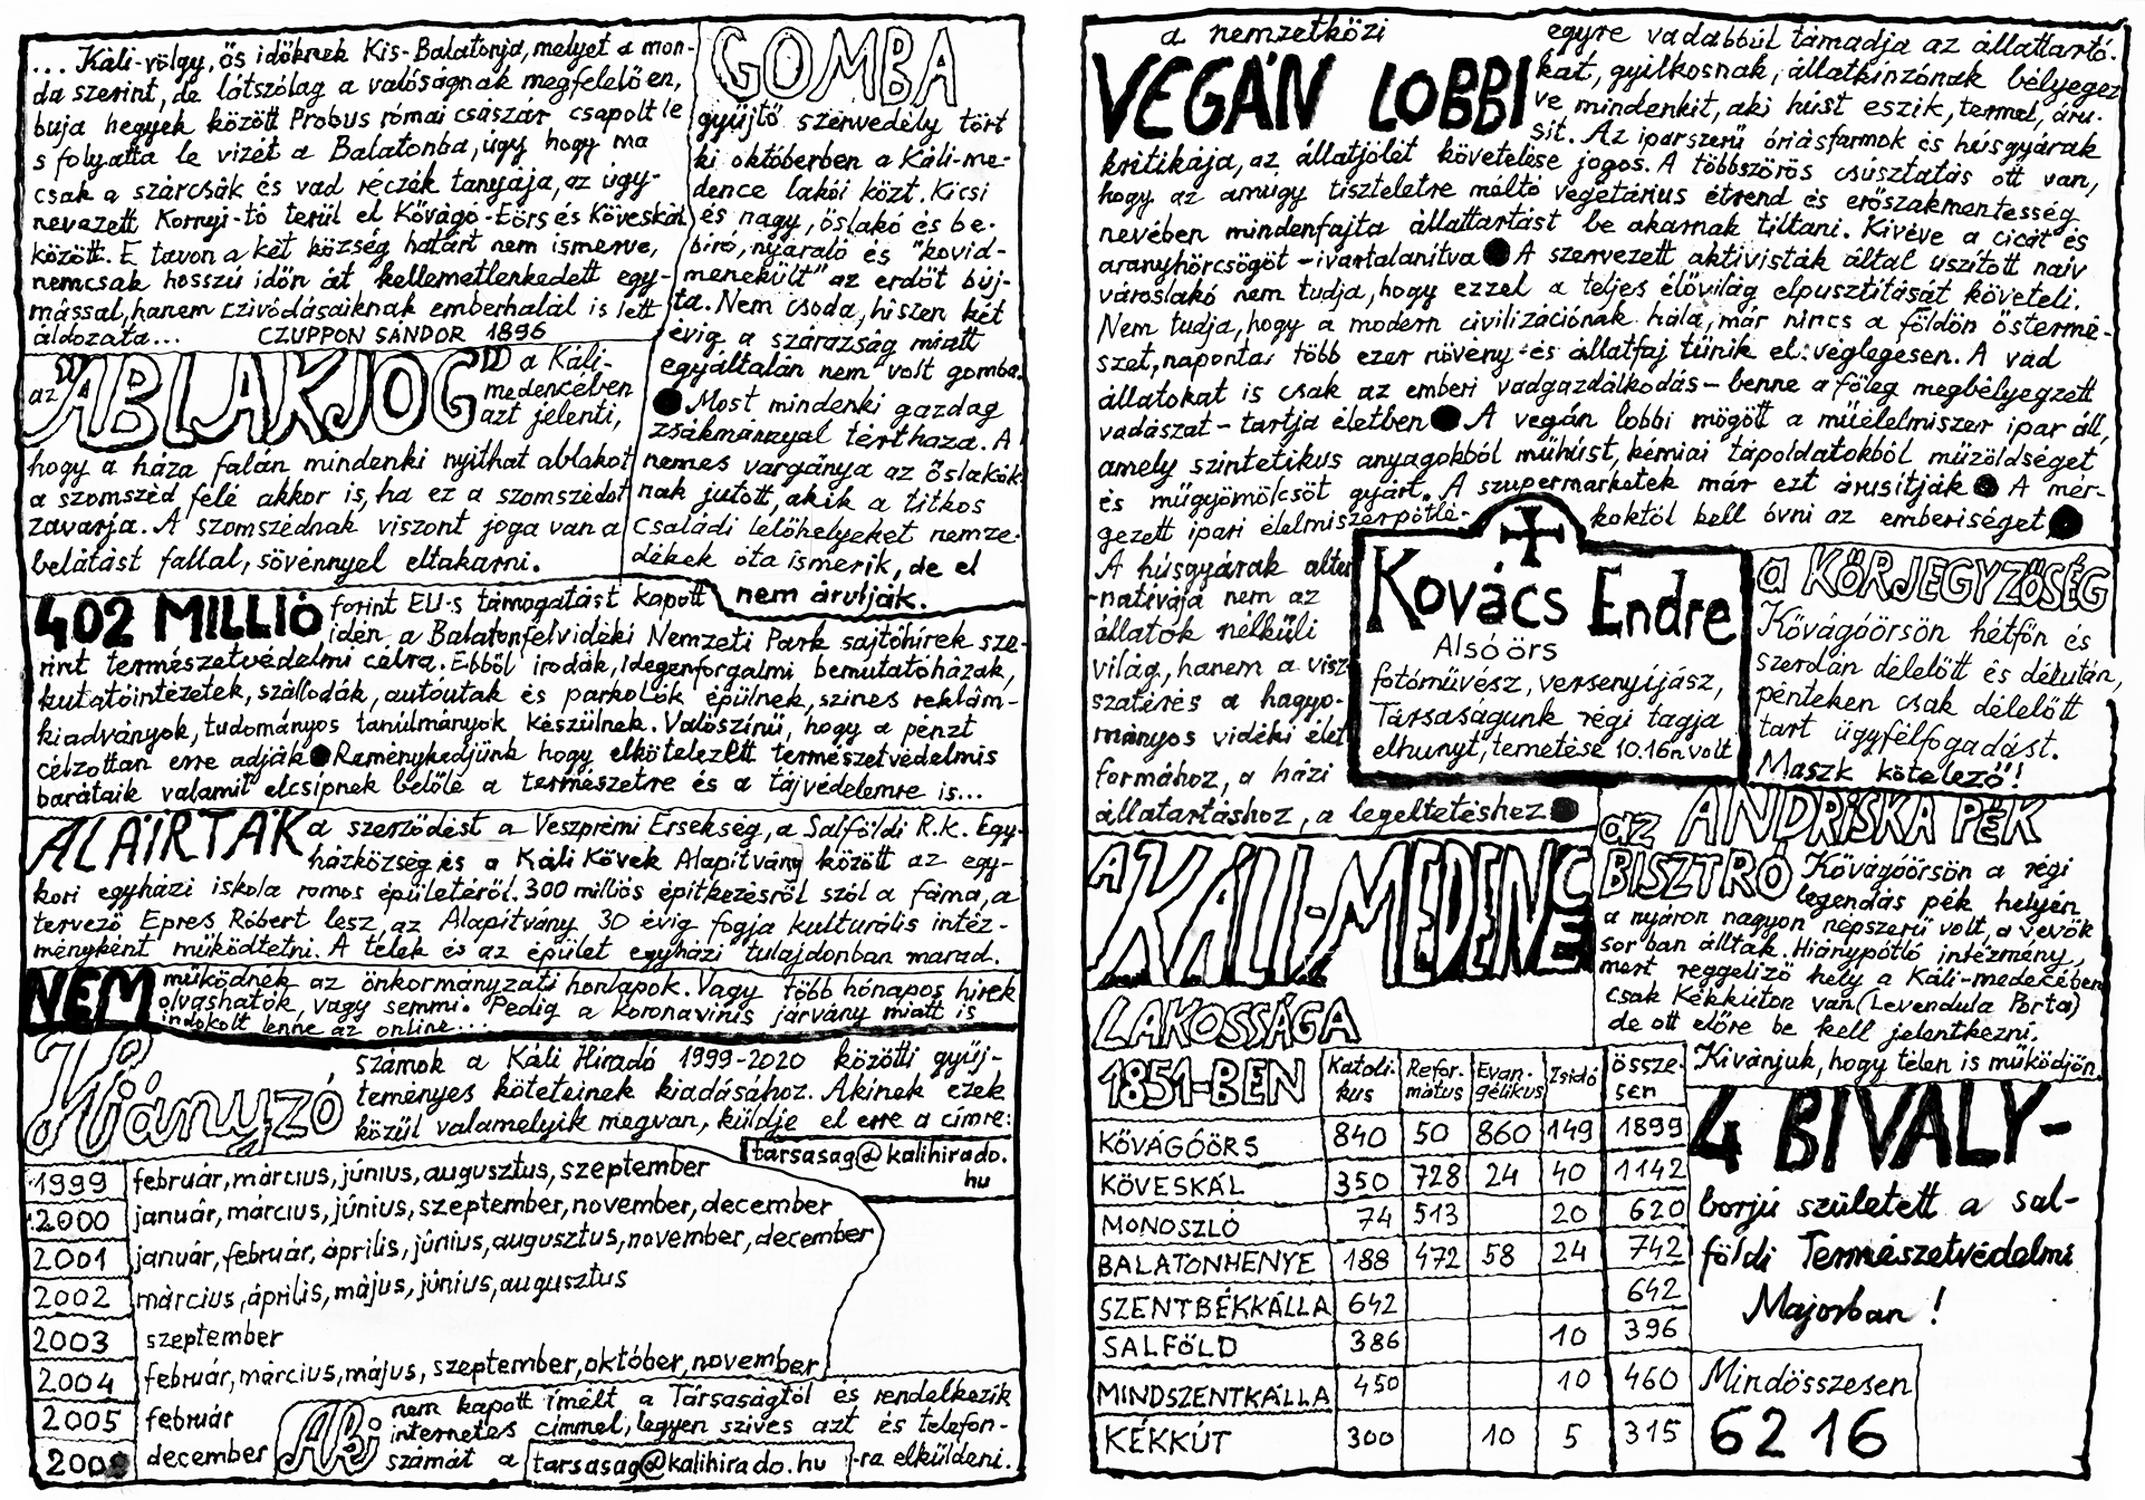 ... Káli-völgy, ős időknek Kis-Balatonja, melyet a mon-
da szerint, de látszólag a valóságnak megfelelően,
buja hegyek között Probus római császár csapolt le
s folyatta le vizét a Balatonba, úgy hogy ma
csak a szárcsák és vad réczék tanyája, az úgy-
nevezett Kornyi-tó terül el Kővágó-Eörs és Köveskál
között. E tavon a két község határt nem ismerve,
nemcsak hosszú időn át kellemetlenkedett egy-
mással, hanem czivódásaiknak emberhalál is lett
áldozata... CZUPPON SÁNDOR 1896
GOMBA
gyűjtő szenvedély tört
ki októberben a Káli-me-
dence lakói közt. Kicsi
és nagy, őslakó és be-
bíró, nyaraló és "kovid-
menekült" az erdőt búj-
ta. Nem csoda, hiszen két
évig a szárazság miatt
egyáltalán nem volt gomba.
● Most mindenki gazdag
zsákmánnyal tért haza. A
nemes vargánya az őslakók-
nak jutott, akik a titkos
családi lelőhelyeket nemze-
dékek óta ismerik, de el
nem árulják.
az "ABLAKJOG" a Káli-
medencében
azt jelenti,
hogy a háza falán mindenki nyithat ablakot
a szomszéd felé akkor is, ha ez a szomszédot
zavarja. A szomszédnak viszont joga van a
belátást fallal, sövénnyel eltakarni.
402 MILLIÓ forint EU-s támogatást kapott
idén a Balatonfelvidéki Nemzeti Park sajtóhírek sze-
rint természetvédelmi célra. Ebből irodák, idegenforgalmi bemutatóházak,
kutatóintézetek, szállodák, autóutak és parkolók épülnek, színes reklám-
kiadványok, tudományos tanulmányok készülnek. Valószínű, hogy a pénzt
célzottan erre adják ● Reménykedjünk hogy elkötelezett természetvédelmis
barátaik valamit elcsípnek belőle a természetre és a tájvédelemre is...
ALÁÍRTÁK a szerződést a Veszprémi Érsekség, a Salföldi R.K. Egy-
házközség és a Káli Kövek Alapítvány között az egy-
kori egyházi iskola romos épületéről. 300 milliós építkezésről szól a fáma, a
tervező Epres Róbert lesz, az Alapítvány 30 évig fogja kulturális intéz-
ményként működtetni. A telek és az épület egyházi tulajdonban marad.
NEM működnek az önkormányzati honlapok. Vagy több hónapos hírek
olvashatók, vagy semmi. Pedig a koronavírus járvány miatt is
indokolt lenne az online...
Hiányzó számok a Káli Híradó 1999-2020 közötti gyűj-
teményes köteteinek kiadásához. Akinek ezek
közül valamelyik megvan, küldje el erre a címre:
tarsasag@kalihirado.
hu
1999 február, március, június, augusztus, szeptember
2000 január, március, június, szeptember, november, december
2001 január, február, április, június, augusztus, november, december
2002 március, április, május, június, augusztus
2003 szeptember
2004 február, március, május, szeptember, október, november
2005 február
2008 december
Aki nem kapott ímélt a Társaságtól és rendelkezik
internetes címmel, legyen szíves azt és telefon-
számát a tarsasag@kalihirado.hu -ra elküldeni.
a nemzetközi
VEGÁN LOBBI
egyre vadabbul támadja az állattartó-
kat, gyilkosnak, állatkínzónak bélyegez
ve mindenkit, aki húst eszik, termel, áru-
sít. Az iparszerű óriásfarmok és húsgyárak
kritikája, az állatjólét követelése jogos. A többszörös csúsztatás ott van,
hogy az amúgy tiszteletre méltó vegetárius étrend és erőszakmentesség
nevében mindenfajta állattartást be akarnak tiltani. Kivéve a cicát és
aranyhörcsögöt - ivartalanítva ● A szervezett aktivisták által uszított naív
városlakó nem tudja, hogy ezzel a teljes élővilág elpusztítását követeli.
Nem tudja, hogy a modern civilizációnak hála, már nincs a földön őstermé-
szet, naponta több ezer növény- és állatfaj tűnik el: véglegesen. A vad
állatokat is csak az emberi vadgazdálkodás - benne a főleg megbélyegzett
vadászat - tartja életben ● A vegán lobbi mögött a műélelmiszer ipar áll,
amely szintetikus anyagokból műhúst, kémiai tápoldatokból műzöldséget
és műgyümölcsöt gyárt. A szupermarketek már ezt árusítják ● A mér-
gezett ipari élelmiszerpótlé- koktól kell óvni az emberiséget ●
A húsgyárak alter
-natívája nem az
állatok nélküli
világ, hanem a visz-
szatérés a hagyo-
mányos vidéki élet
formához, a házi
állatartáshoz, a legeltetéshez ●
Kovács Endre
Alsóörs
fotóművész, versenyíjász,
Társaságunk régi tagja
elhunyt, temetése 10.16-n volt
a KÖRJEGYZŐSÉG
Kővágóörsön hétfőn és
szerdán délelőtt és délután,
pénteken csak délelőtt
tart ügyfélfogadást.
Maszk kötelező!!
az ANDRISKA PÉK
BISZTRÓ Kővágóörsön a régi
legendás pék helyén
a nyáron nagyon népszerű volt, a vevők
sorban álltak. Hiánypótló intézmény,
mert reggeliző hely a Káli-medecében
csak Kékkúton van (Levendula Porta)
de ott előre be kell jelentkezni.
Kívánjuk, hogy télen is működjön.
A KÁLI-MEDENCE
LAKOSSÁGA
1851-BEN Katoli-kus Refor-mátus Evan-gélikus Zsidó össze-sen
KŐVÁGÓÖRS 840 50 860 149 1899
KÖVESKÁL 350 728 24 40 1142
MONOSZLÓ 74 513 20 620
BALATONHENYE 188 472 58 24 742
SZENTBÉKKÁLLA 642 642
SALFÖLD 386 10 396
MINDSZENTKÁLLA 450 10 460
KÉKKÚT 300 10 5 315
4 BIVALY-
borjú született a sal-
földi Természetvédelmi
Majorban!
Mindösszesen
6216